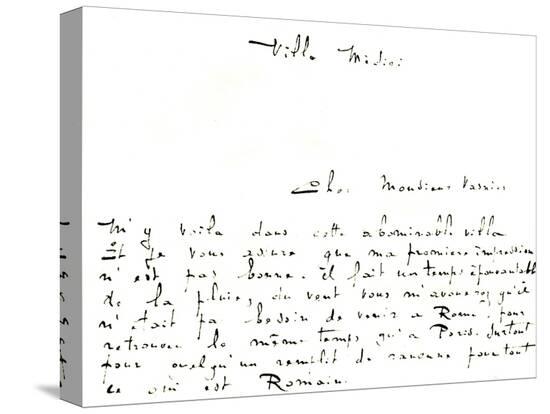 Villa Médici
Cher Monsieur Vasnier
M'y voila dans cette abominable villa
Et je vous assure que ma premiere impression
n'est pas bonne. il fait un temps épouvantable
de la pluie, du vent vous m'avouerez qu'il
n'était pas besoin de venir a Rome pour
retrouver le même temps qu'a Paris. Surtout
pour quelqu'un remplit de rancune pour tout
ce qui est Romain.